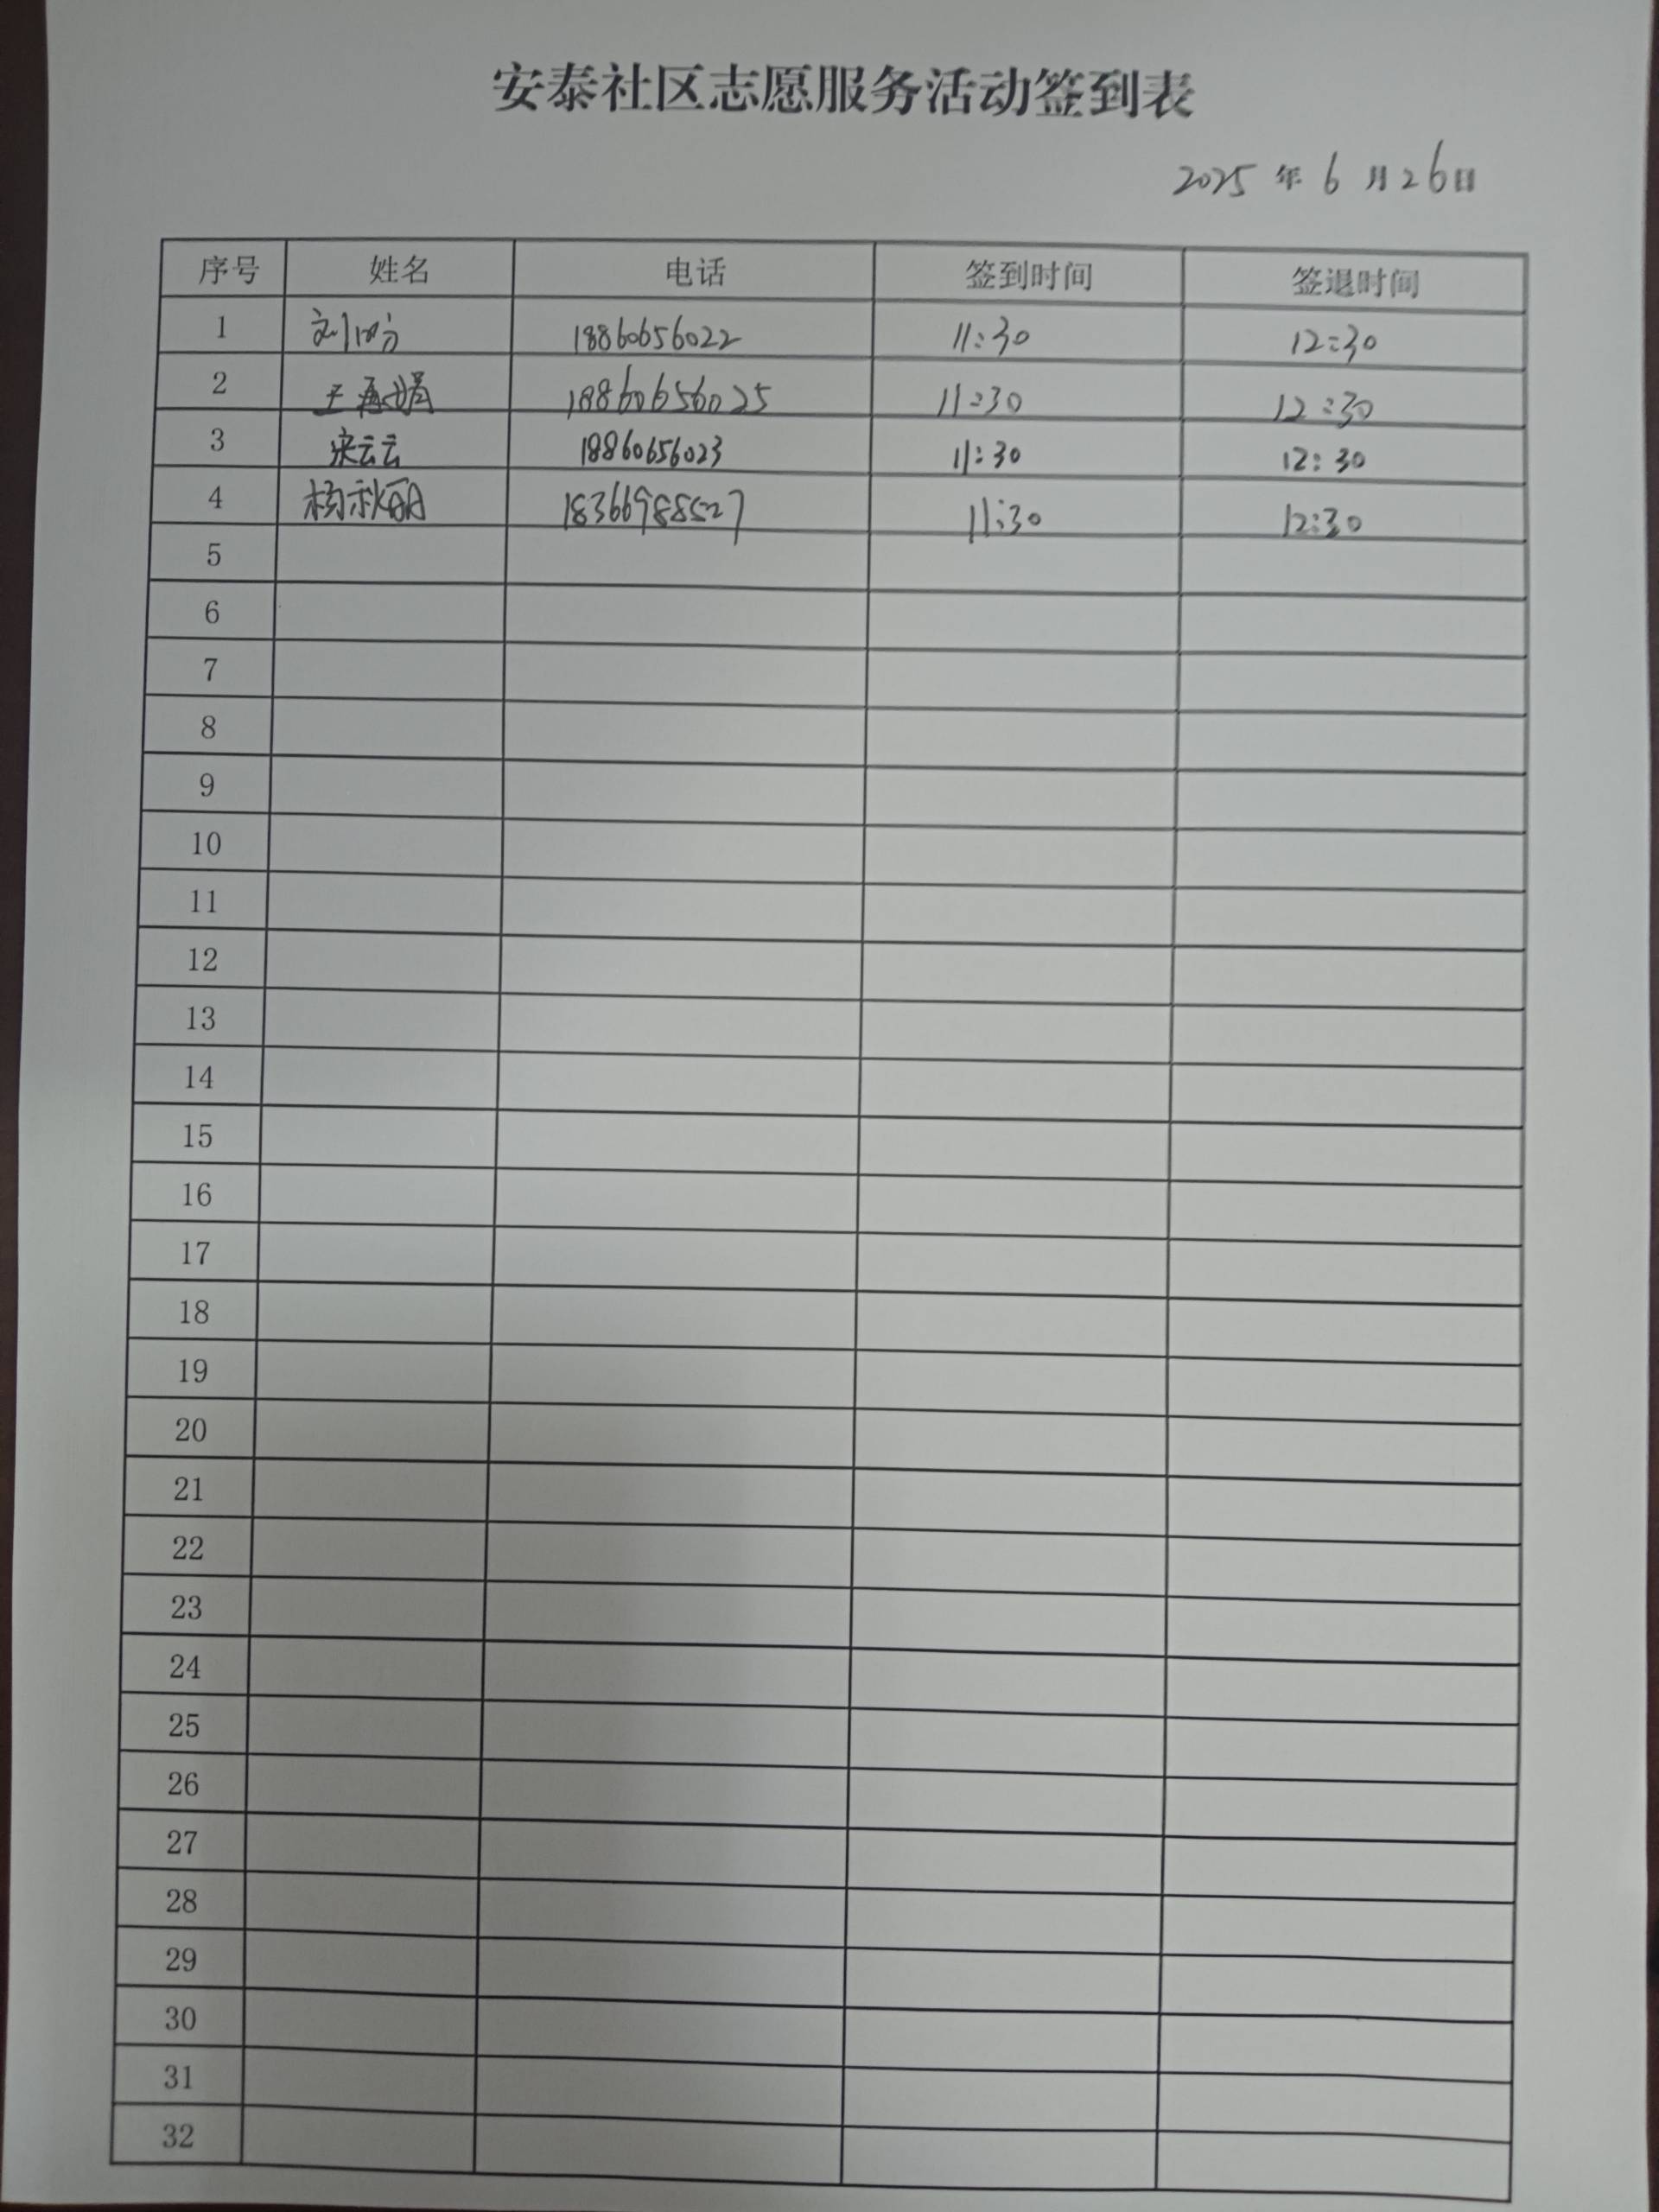 安泰社区志愿服务活动签到表
2025 年 6 月 26 日
序号 姓名 电话 签到时间 签退时间
1 18860656022 11:30 12:30
2 王 18860656025 11:30 12:30
3 宋云云 18860656023 11:30 12:30
4 杨秋丽 18366988527 11:30 12:30
5
6
7
8
9
10
11
12
13
14
15
16
17
18
19
20
21
22
23
24
25
26
27
28
29
30
31
32